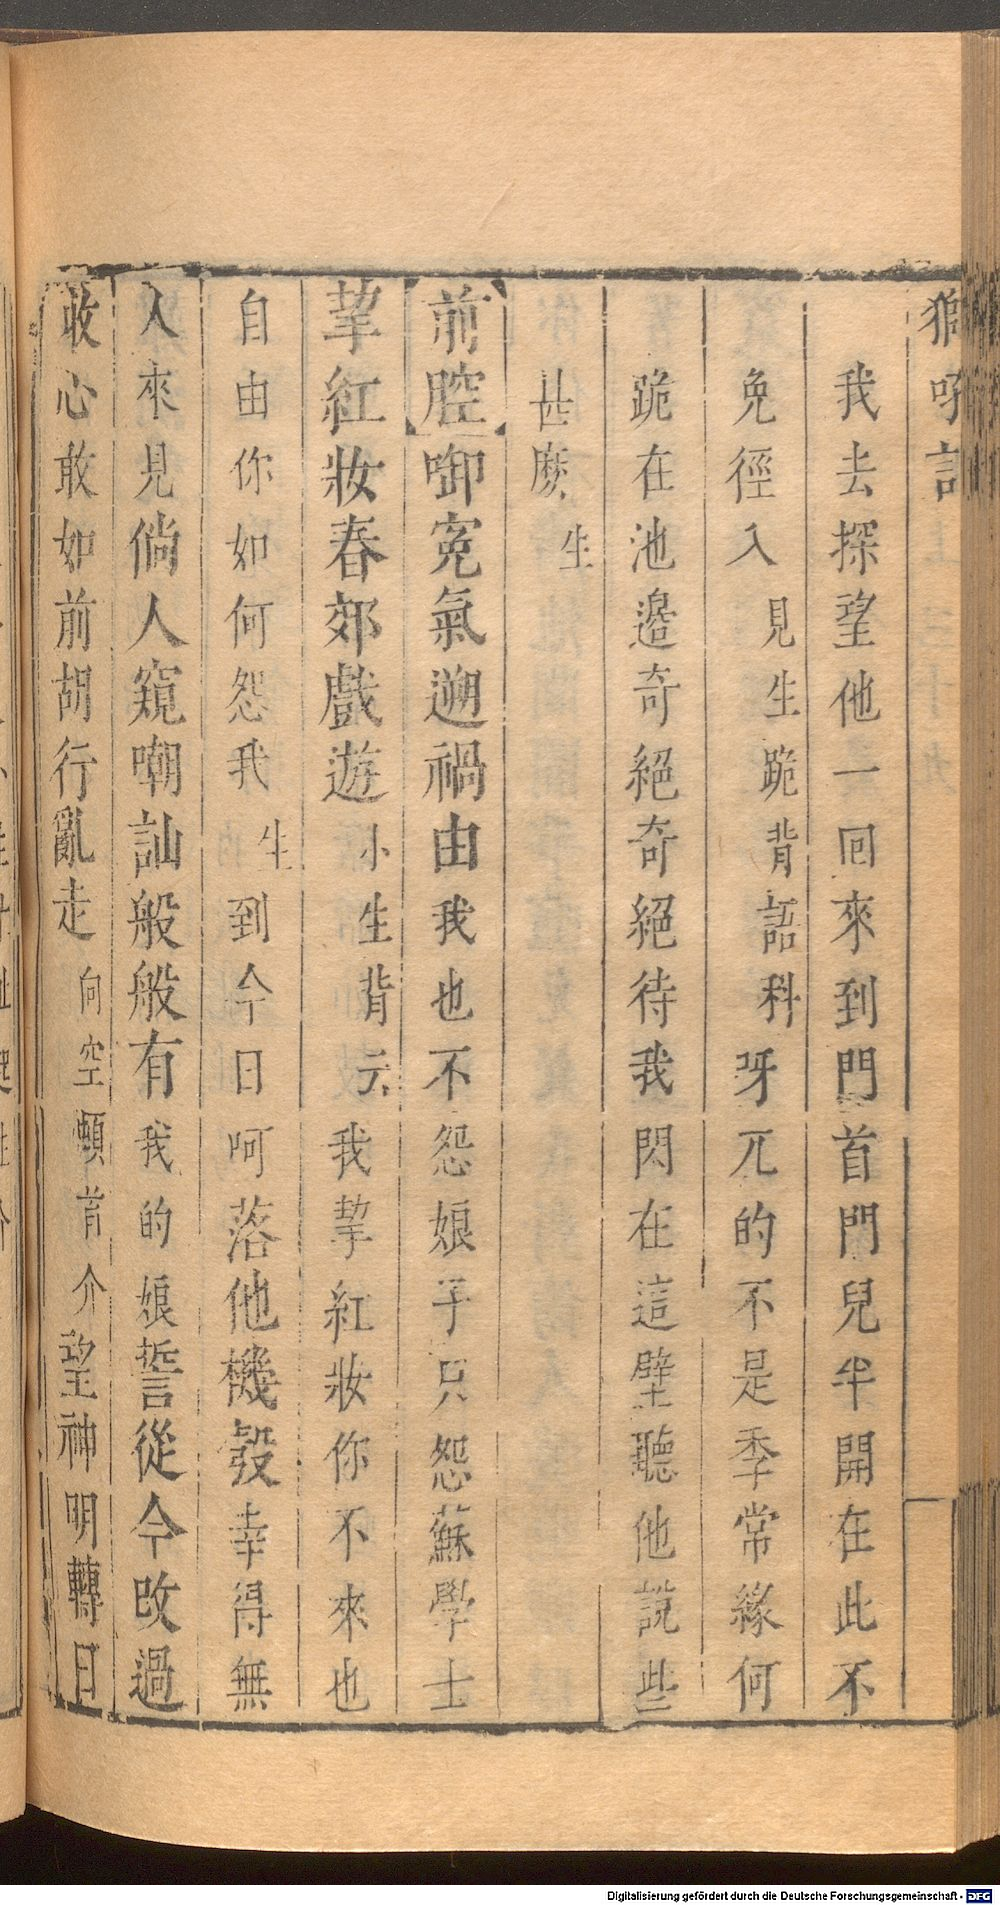 獅吼記
我去探望他一回來到門首門兒半開在此不
免徑入 見生跪背語科 呀兀的不是季常緣何
跪在池邉奇絕奇絕待我閃在這壁聽他說些
甚麽 生
【前腔】啣寃氣遡禍由我也不怨娘子只怨蘇學士
挈紅妝春郊戲遊 小生背云 我挈紅妝你不來也
自由你如何怨我 生 到今日呵落他機彀幸得無
人來見倘人窺嘲訕般般有我的娘誓從今改過
敢心敢如前胡行亂走 向空頓首介 望神明轉日
Digitalisierung gefördert durch die Deutsche Forschungsgemeinschaft - DFG